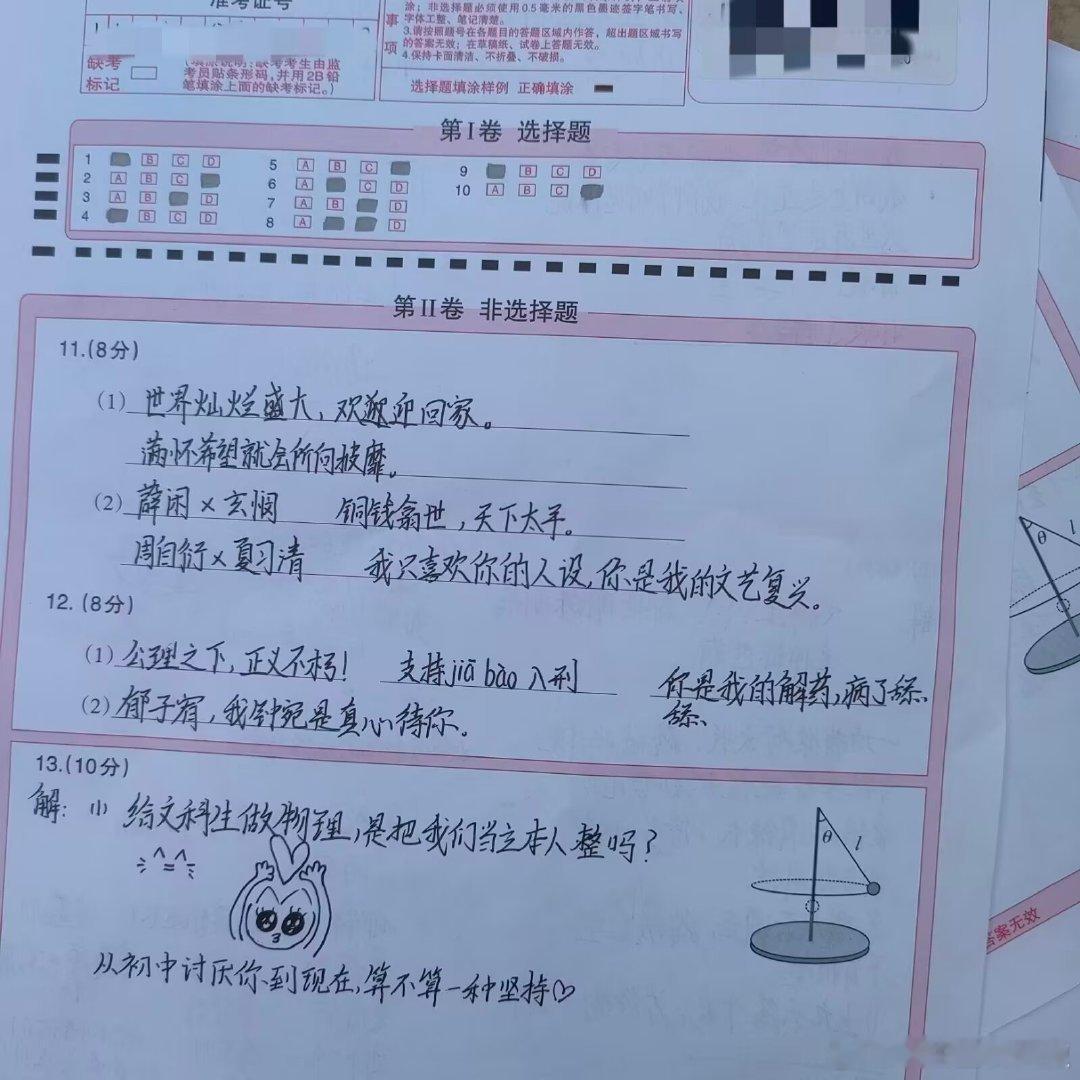 准考证号
缺考
标记
考员贴条形码,并用2B铅
笔填涂上面的缺考标记。)
事
项
涂;非选择题必须使用0.5毫米的黑色墨迹签字笔书写、
字体工整、笔记清楚。
3.请按照题号在各题目的答题区域内作答,超出题区域书写
的答案无效;在草稿纸、试卷上答题无效。
4.保持卡面清洁、不折叠、不破损。
选择题填涂样例 正确填涂
第I卷 选择题
1 B C D 5 A B C 9 B C D
2 A B C 6 A C D 10 A B C
3 A B D 7 A B D
4 B C D 8 A D
第II卷 非选择题
11.(8分)
(1) 世界灿烂盛大,欢迎回家。
满怀希望就会所向披靡。
(2) 薛闲×玄悯 铜钱翕世,天下太平。
周自珩×夏习清 我只喜欢你的人设,你是我的文艺复兴。
12.(8分)
(1) 公理之下,正义不朽! 支持jiā bào入刑 你是我的解药,病了舔、
舔、
(2) 郁子宥,我钟宛是真心待你。
13.(10分)
解: (1) 给文科生做物理,是把我们当立本人整吗?
θ l
从初中讨厌你到现在,算不算一种坚持♡
θ l
答案无效